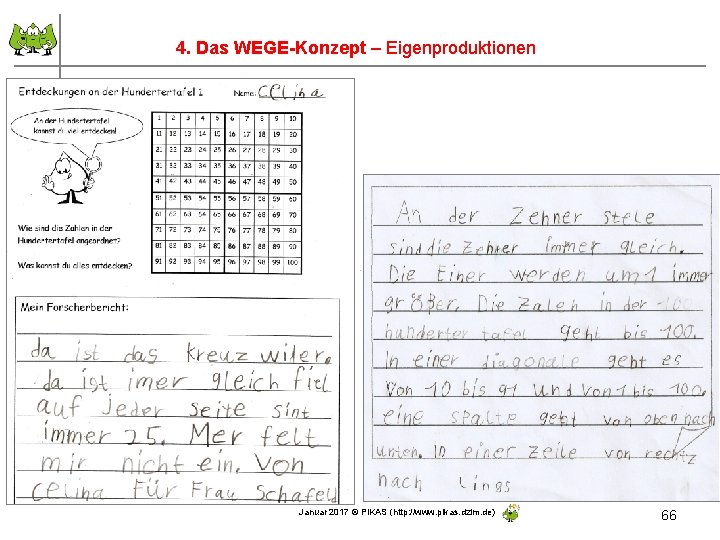 4. Das WEGE-Konzept – Eigenproduktionen
Entdeckungen an der Hundertertafel 1 Name: Celina
An der Hundertertafel
kannst du viel entdecken!
1 2 3 4 5 6 7 8 9 10
11 12 13 14 15 16 17 18 19 20
21 22 23 24 25 26 27 28 29 30
31 32 33 34 35 36 37 38 39 40
41 42 43 44 45 46 47 48 49 50
51 52 53 54 55 56 57 58 59 60
61 62 63 64 65 66 67 68 69 70
71 72 73 74 75 76 77 78 79 80
81 82 83 84 85 86 87 88 89 90
91 92 93 94 95 96 97 98 99 100
Wie sind die Zahlen in der
Hundertertafel angeordnet?
Was kannst du alles entdecken?
Mein Forscherbericht:
da ist das kreuz wiler.
da ist imer gleich fiel
auf jeder seite sint
immer 25. Mer felt
mir nicht ein. Von
Celina Für Frau Schafeld
An der Zehner stele
sind die Zehner immer gleich.
Die Einer werden um 1 immer
größer. Die Zalen in der 100
hunderter tafel geht bis 100.
In einer diagonale geht es
von 10 bis 91 und von 1 bis 100.
eine spalte geht von oben nach
unten. In einer zeile von rechtz
nach lings
Januar 2017 © PIKAS (http://www.pikas.dzlm.de)
66